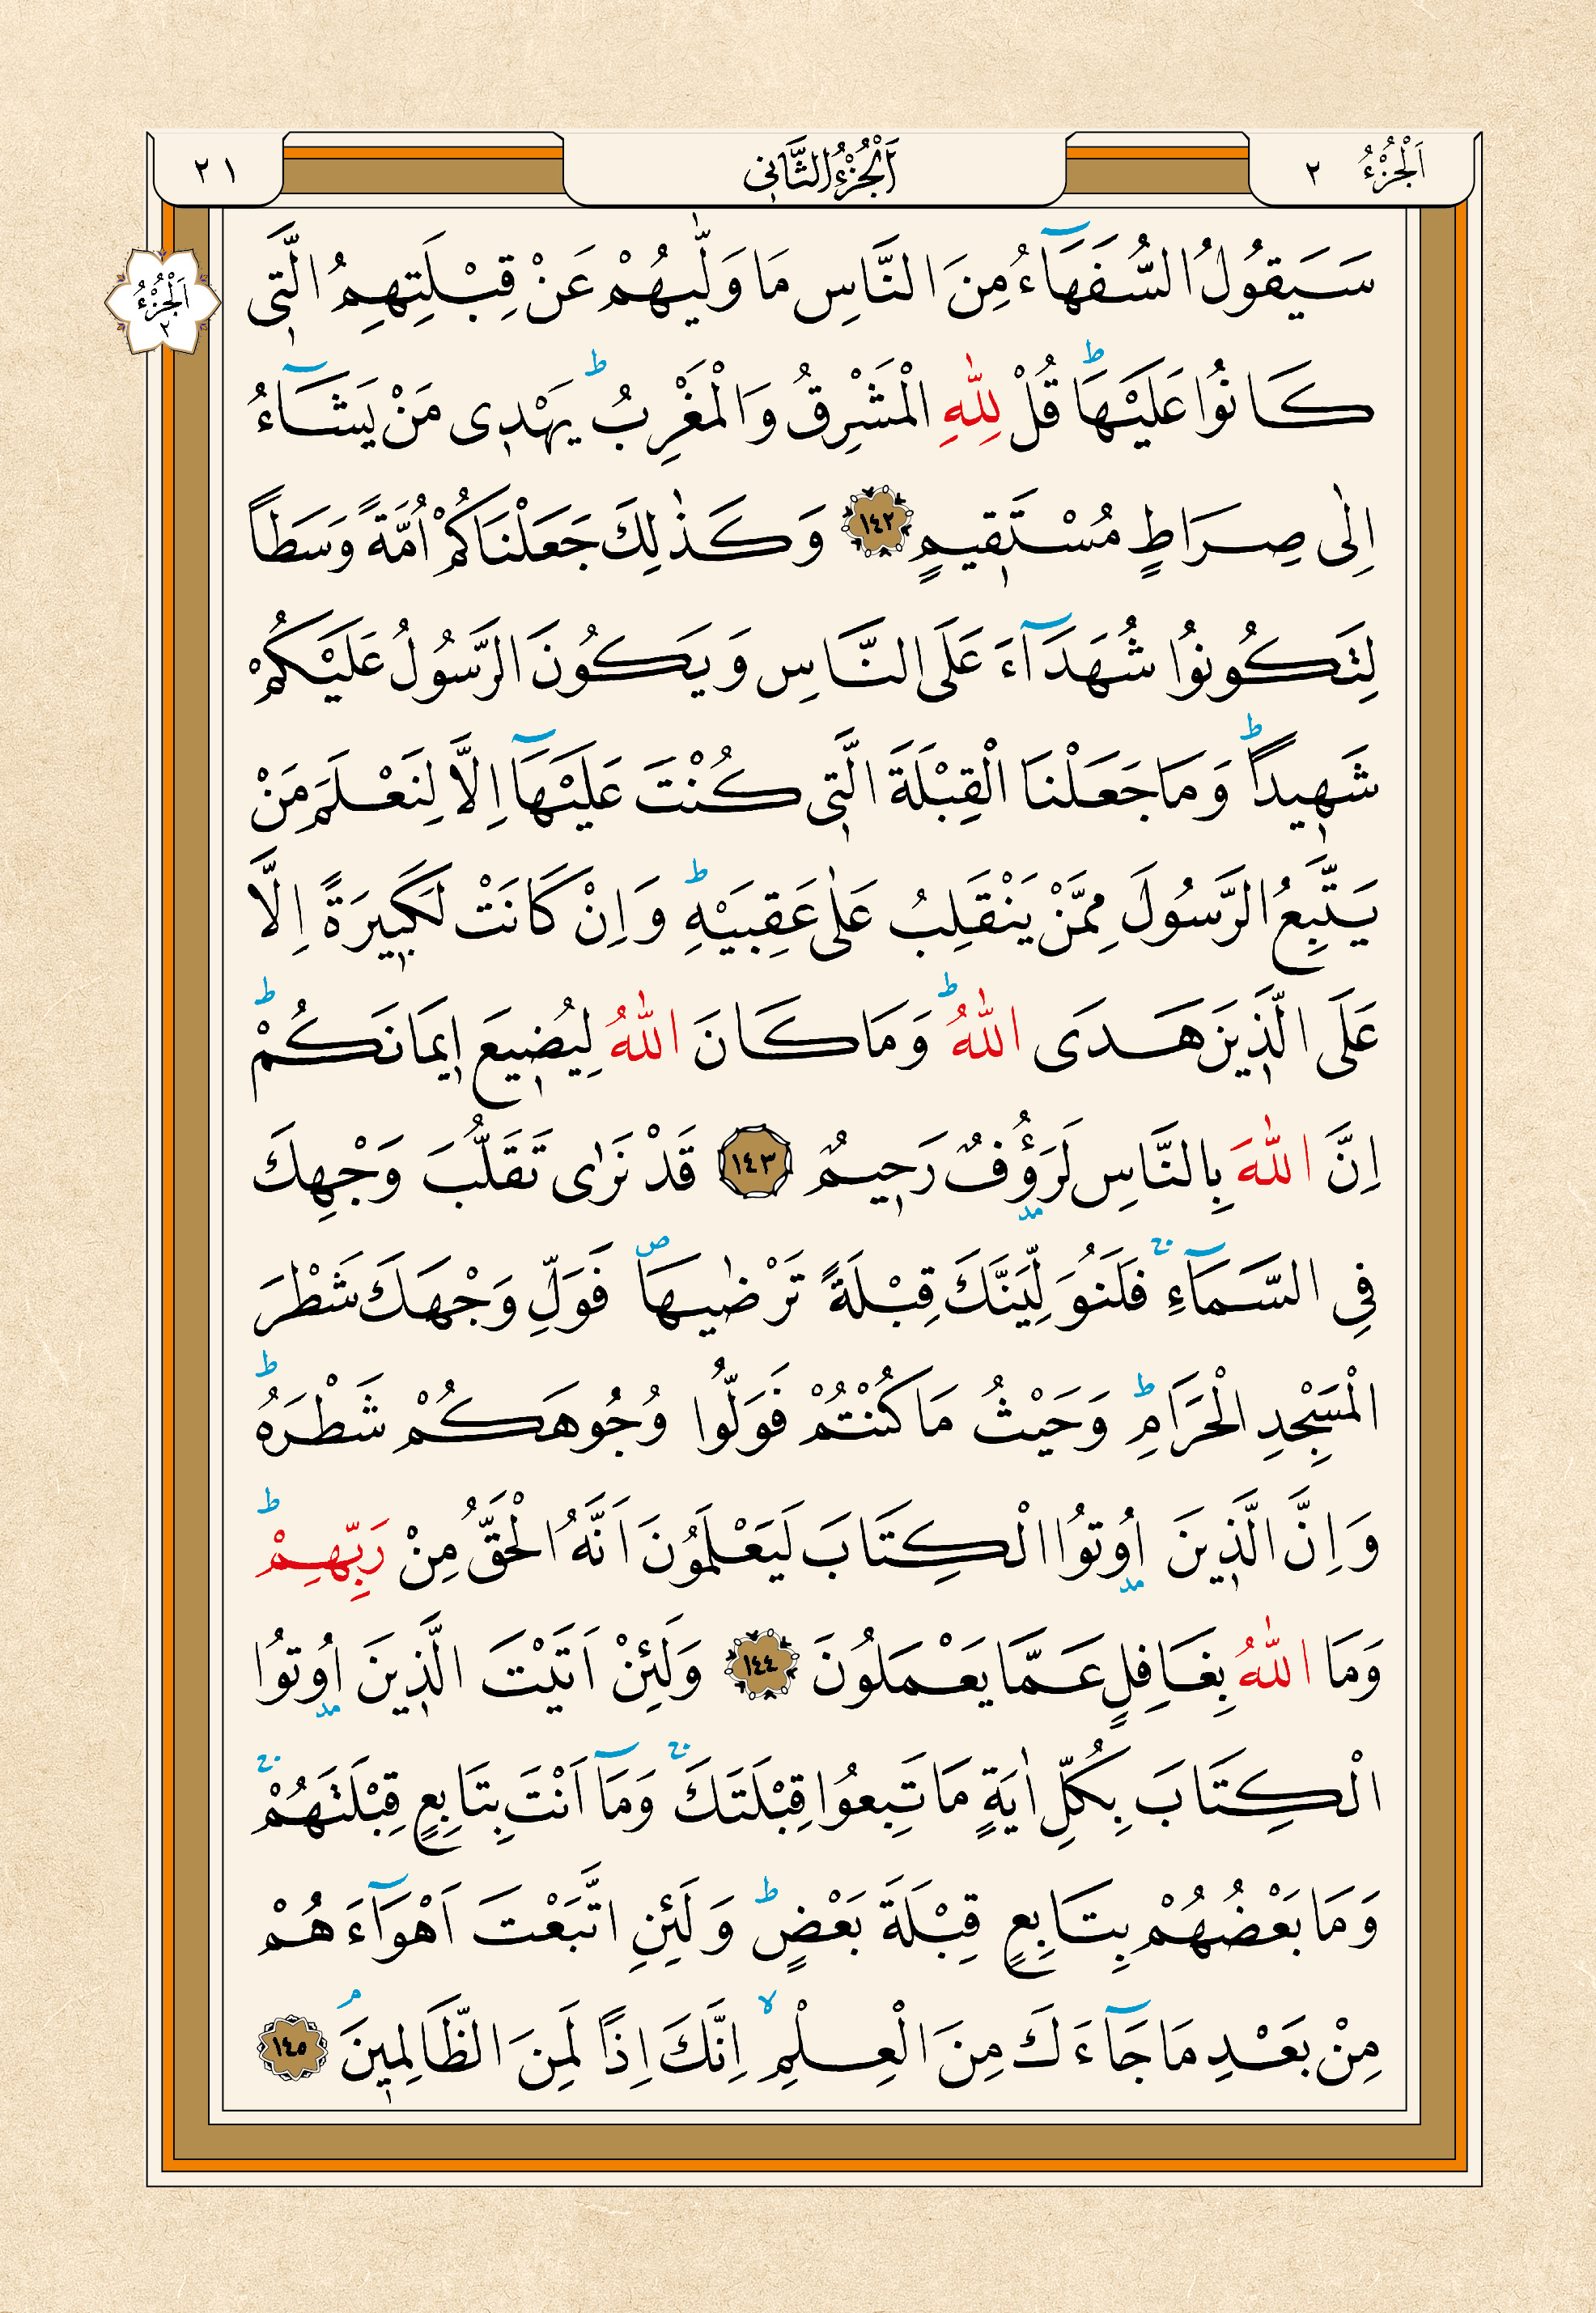 اَلْجُزْءُ ٢
اَلْجُزْءُ الثَّانٖي
٢١
اَلْجُزْءُ
٢
سَيَقُولُ السُّفَهَٓاءُ مِنَ النَّاسِ مَا وَلّٰيهُمْ عَنْ قِبْلَتِهِمُ الَّتٖى
كَانُوا عَلَيْهَاؕ قُلْ لِلّٰهِ الْمَشْرِقُ وَالْمَغْرِبُؕ يَهْدٖى مَنْ يَشَٓاءُ
اِلٰى صِرَاطٍ مُسْتَقٖيمٍ ١٤٢ وَكَذٰلِكَ جَعَلْنَاكُمْ اُمَّةً وَسَطاً
لِتَكُونُوا شُهَدَٓاءَ عَلَى النَّاسِ وَيَكُونَ الرَّسُولُ عَلَيْكُمْ
شَهٖيداًؕ وَمَا جَعَلْنَا الْقِبْلَةَ الَّتٖى كُنْتَ عَلَيْهَٓا اِلَّا لِنَعْلَمَ مَنْ
يَتَّبِعُ الرَّسُولَ مِمَّنْ يَنْقَلِبُ عَلٰى عَقِبَيْهِؕ وَاِنْ كَانَتْ لَكَبٖيرَةً اِلَّا
عَلَى الَّذٖينَ هَدَى اللّٰهُؕ وَمَا كَانَ اللّٰهُ لِيُضٖيعَ اٖيمَانَكُمْؕ
اِنَّ اللّٰهَ بِالنَّاسِ لَرَؤُ۫فٌ رَحٖيمٌ ١٤٣ قَدْ نَرٰى تَقَلُّبَ وَجْهِكَ
فِى السَّمَٓاءِۚ فَلَنُوَلِّيَنَّكَ قِبْلَةً تَرْضٰيهَاࣕ فَوَلِّ وَجْهَكَ شَطْرَ
الْمَسْجِدِ الْحَرَامِؕ وَحَيْثُ مَا كُنْتُمْ فَوَلُّوا وُجُوهَكُمْ شَطْرَهُؕ
وَاِنَّ الَّذٖينَ اُو۫تُوا الْكِتَابَ لَيَعْلَمُونَ اَنَّهُ الْحَقُّ مِنْ رَبِّهِمْؕ
وَمَا اللّٰهُ بِغَافِلٍ عَمَّا يَعْمَلُونَ ١٤٤ وَلَئِنْ اَتَيْتَ الَّذٖينَ اُو۫تُوا
الْكِتَابَ بِكُلِّ اٰيَةٍ مَا تَبِعُوا قِبْلَتَكَۚ وَمَٓا اَنْتَ بِتَابِعٍ قِبْلَتَهُمْۚ
وَمَا بَعْضُهُمْ بِتَابِعٍ قِبْلَةَ بَعْضٍؕ وَلَئِنِ اتَّبَعْتَ اَهْوَٓاءَهُمْ
مِنْ بَعْدِ مَا جَٓاءَكَ مِنَ الْعِلْمِۙ اِنَّكَ اِذاً لَمِنَ الظَّالِمٖينَۢ ١٤٥